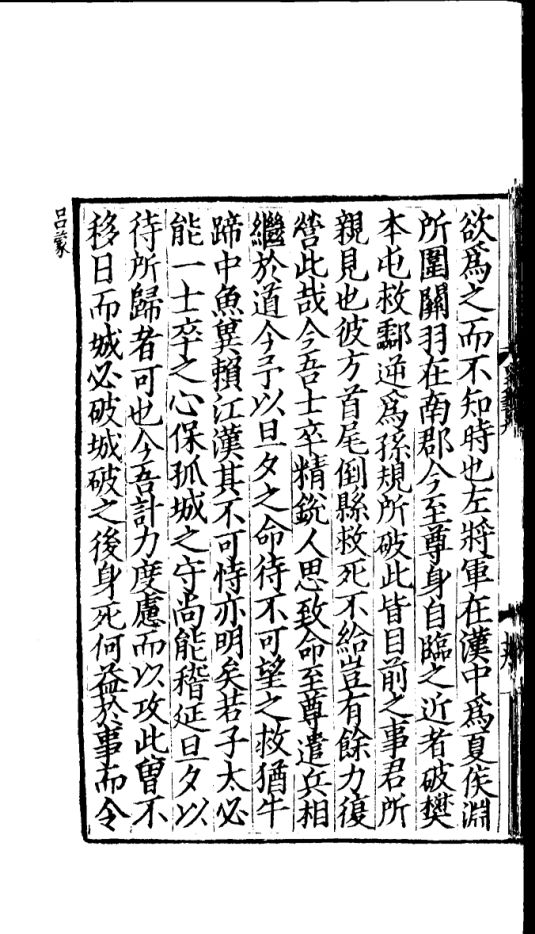 欲爲之而不知時也左將軍在漢中爲夏侯淵
所圍關羽在南郡今至尊身自臨之近者破樊
本屯救酃逆爲孫規所破此皆目前之事君所
親見也彼方首尾倒縣救死不給豈有餘力復
營此哉今吾士卒精銳人思致命至尊遣兵相
繼於道今予以旦夕之命待不可望之救猶牛
蹄中魚冀賴江漢其不可恃亦明矣若子太必
能一士卒之心保孤城之守尚能稽延旦夕以
待所歸者可也今吾計力度慮而以攻此曾不
移日而城必破城破之後身死何益於事而令
呂蒙